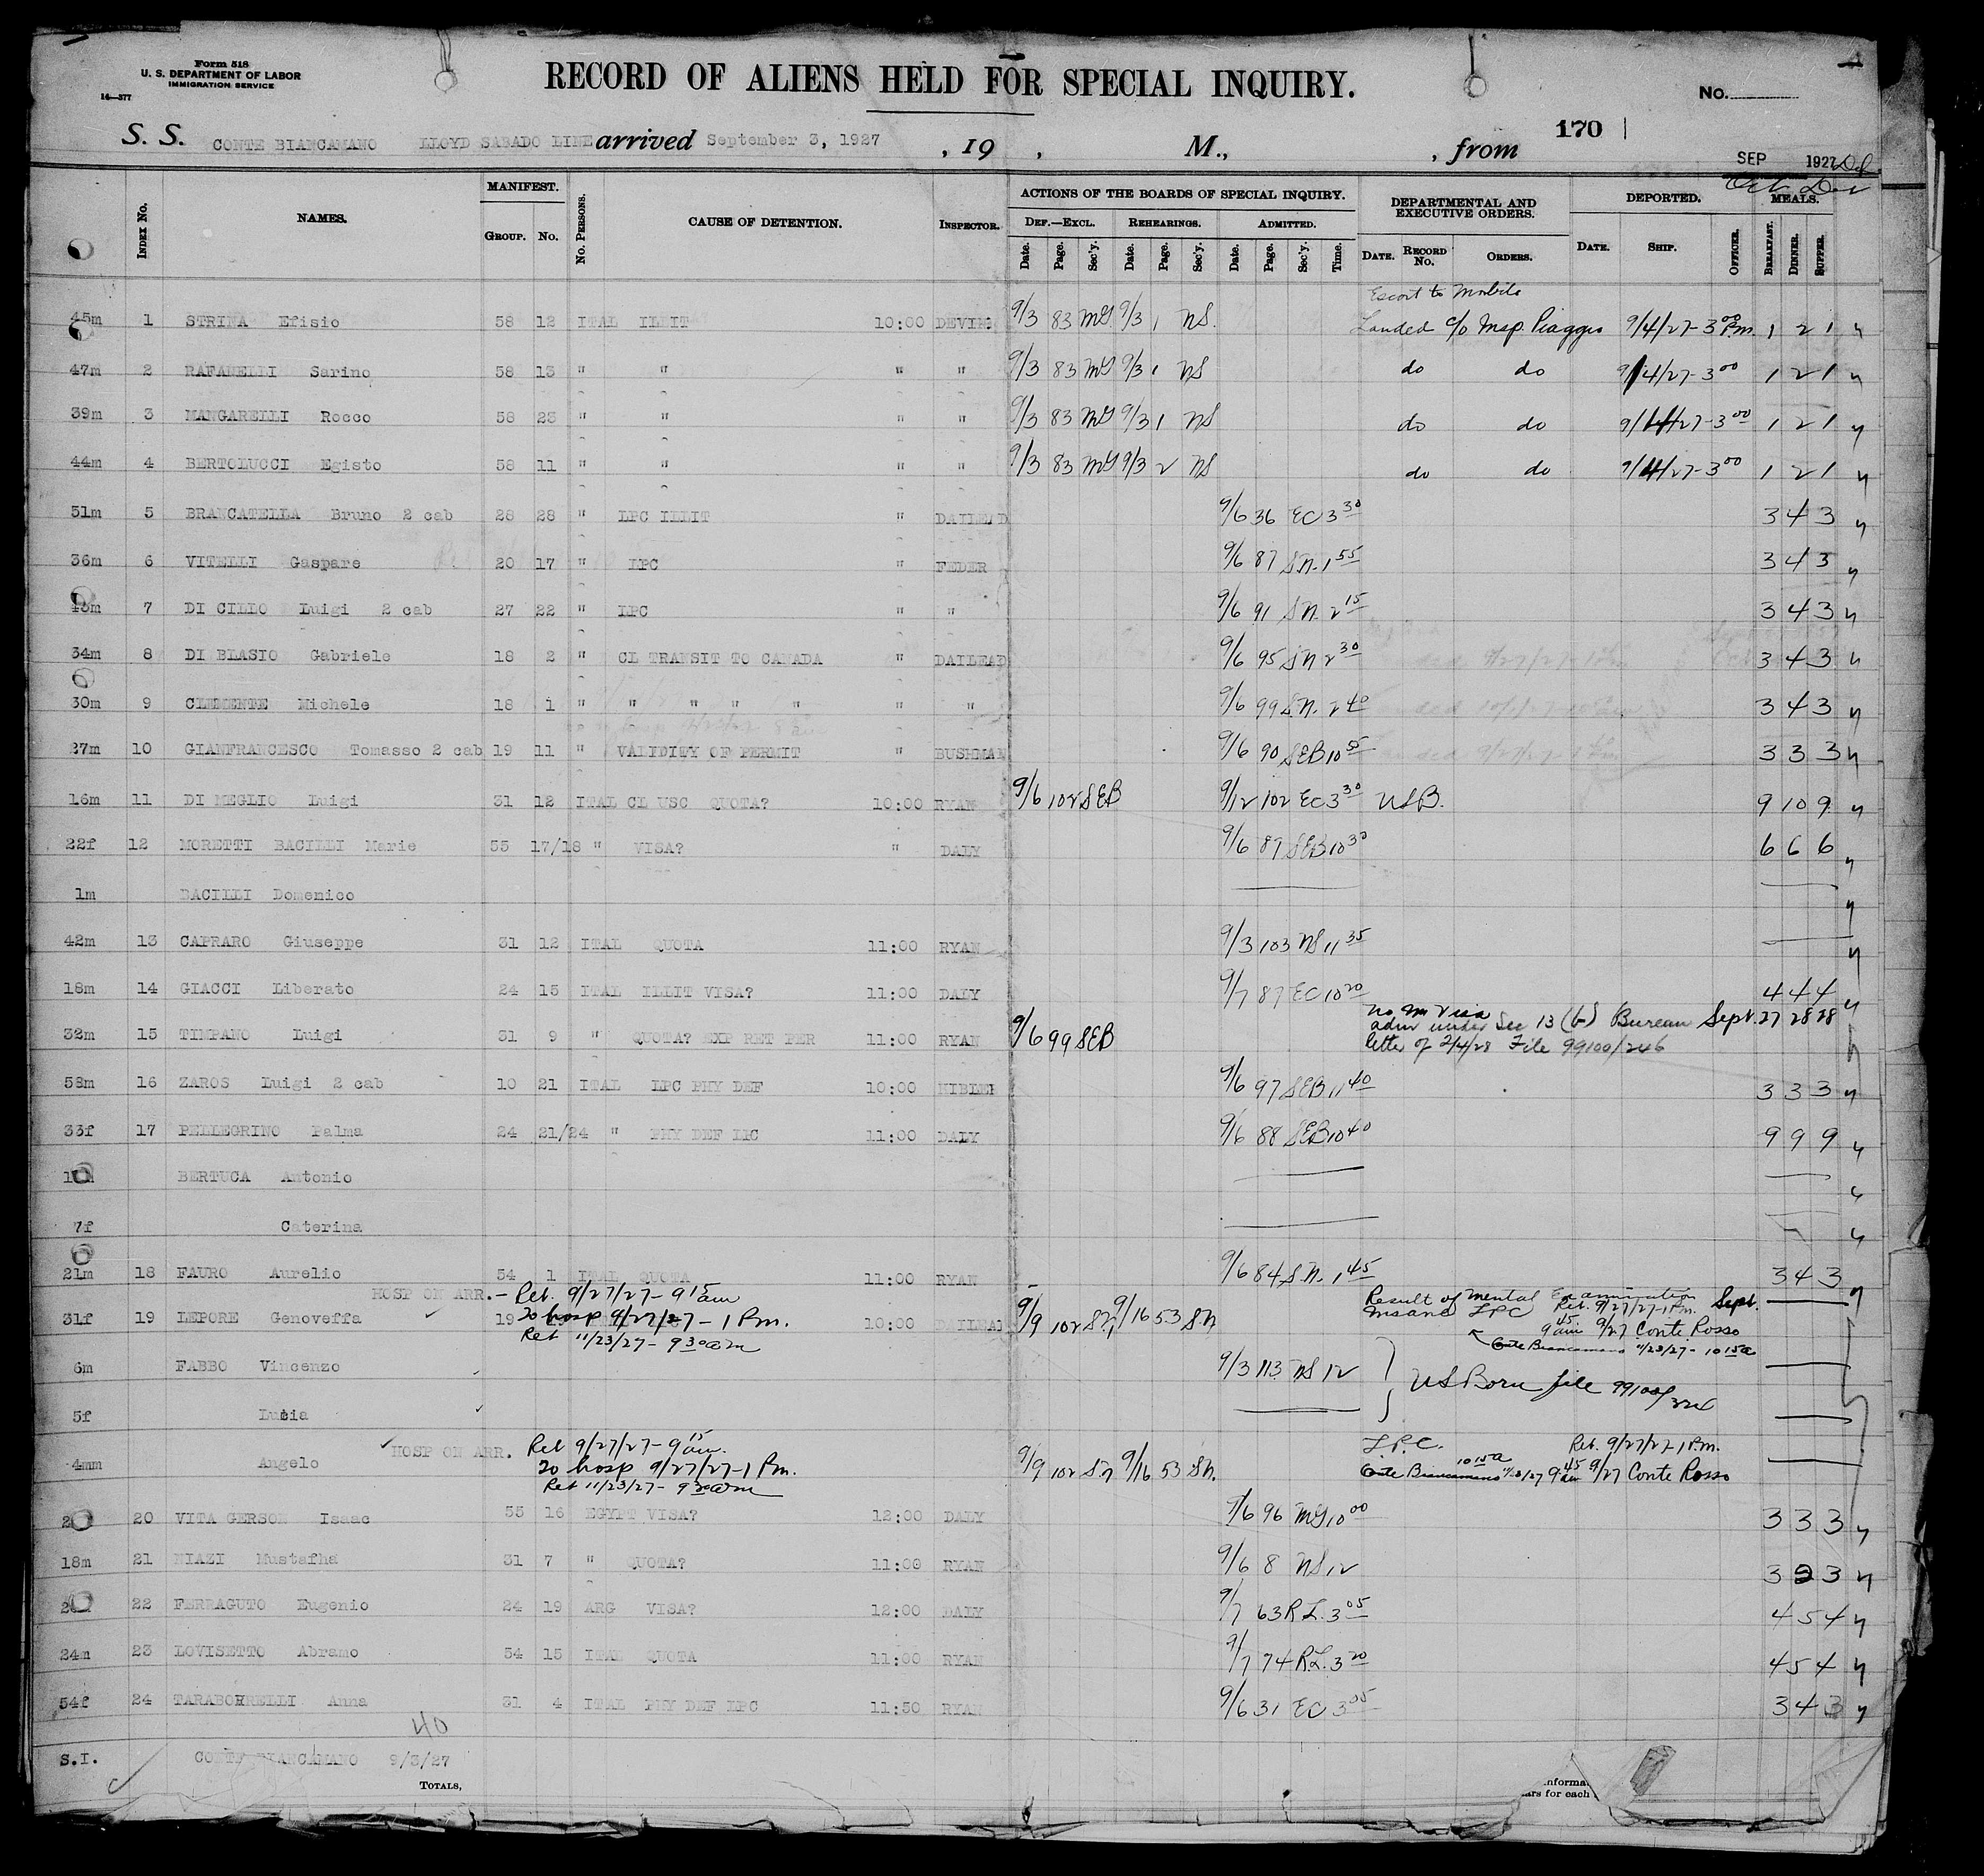 Form 518
U. S. DEPARTMENT OF LABOR
IMMIGRATION SERVICE
14—377
RECORD OF ALIENS HELD FOR SPECIAL INQUIRY.
No.
170
S. S. CONTE BIANCAMANO LLOYD SABADO LINE arrived September 3, 1927 , 19 , M., , from
SEP 1927
Index No. NAMES. MANIFEST. GROUP. No. No. PERSONS. CAUSE OF DETENTION. INSPECTOR. ACTIONS OF THE BOARDS OF SPECIAL INQUIRY. DEF.—EXCL. REHEARINGS. ADMITTED. Date. Page. Sec'y. Date. Page. Sec'y. Date. Page. Sec'y. Time. DEPARTMENTAL AND EXECUTIVE ORDERS. DATE. RECORD No. ORDERS. DEPORTED. DATE. SHIP. OFFICER. MEALS. BREAKFAST. DINNER. SUPPER.
Escort to Mobile
45m 1 STRINA Efisio 58 12 ITAL ILLIT 10:00 DEVINE 9/3 83 MG 9/3 1 NS. Landed c/o Insp. Piaggio 9/4/27-3 00 P.m. 1 2 1
47m 2 RAFANELLI Sarino 58 13 " " " " 9/3 83 MG 9/3 1 NS do do 9/4/27-3 00 1 2 1
39m 3 MANGARELLI Rocco 58 23 " " " " 9/3 83 MG 9/3 1 NS do do 9/4/27-3 00 1 2 1
44m 4 BERTOLUCCI Egisto 58 11 " " " " 9/3 83 MG 9/3 2 NS do do 9/4/27-3 00 1 2 1
51m 5 BRANCATELLA Bruno 2 cab 28 28 " LPC ILLIT " DAILEAD 9/6 36 EC 3 30 3 4 3
36m 6 VITELLI Gaspare 20 17 " LPC " FEDER 9/6 87 S.N. 1 55 3 4 3
43m 7 DI CILLO Luigi 2 cab 27 22 " LPC " " 9/6 91 S.N. 2 15 3 4 3
34m 8 DI BLASIO Gabriele 18 2 " CL TRANSIT TO CANADA " DAILEAD 9/6 95 SN 2 30 3 4 3
30m 9 CLEMENTE Michele 18 1 " " " " " " " 9/6 99 S.N. 2 40 3 4 3
27m 10 GIANFRANCESCO Tomasso 2 cab 19 11 " VALIDITY OF PERMIT " BUSHMAN 9/6 90 SEB 10 55 3 3 3
16m 11 DI MEGLIO Luigi 31 12 ITAL CL USC QUOTA? 10:00 RYAN 9/6 102 SEB 9/12 102 EC 3 30 USB. 9 10 9
22f 12 MORETTI BACILLI Marie 55 17/18 " VISA? " DALY 9/6 89 SEB 10 30 6 6 6
1m BACILLI Domenico
42m 13 CAPRARO Giuseppe 31 12 ITAL QUOTA 11:00 RYAN 9/3 103 NS 11 35
18m 14 GIACCI Liberato 24 15 ITAL ILLIT VISA? 11:00 DALY 9/7 87 EC 10 20 4 4 4
No Im Visa
32m 15 TIMPANO Luigi 31 9 " QUOTA? EXP RET PER 11:00 RYAN 9/6 99 SEB adm under Sec 13 (b) Bureau Sept. 27 28 28
letter of 2/4/28 File 99100/246
58m 16 ZAROS Luigi 2 cab 10 21 ITAL LPC PHY DEF 10:00 HIBLER 9/6 97 SEB 11 40 3 3 3
33f 17 PELLEGRINO Palma 24 21/24 " PHY DEF LIC 11:00 DALY 9/6 88 SEB 10 40 9 9 9
BERTUCA Antonio
7f Caterina
21m 18 FAURO Aurelio 54 1 ITAL QUOTA 11:00 RYAN 9/6 84 S.N. 1 45 3 4 3
HOSP ON ARR. - Ret. 9/27/27- 9 15 am Result of Mental Examination Sept.
31f 19 LEPORE Genoveffa 19 To hosp 9/27/27 - 1 P.m. 10:00 DAILEAD 9/9 102 S.N. 9/16 53 S.N. Insane LPC Ret. 9/27/27-1 P.M.
Ret 11/23/27- 9 30 am 9 45 am 9/27 Conte Rosso
Conte Biancamano 11/23/27- 10 15 a
6m FABBO Vincenzo 9/3 113 NS 12 US Born file 99100/
5f Lucia
HOSP ON ARR. Ret 9/27/27- 9 15 am. L.P.C. Ret. 9/27/27-1 P.m.
4mm Angelo To hosp 9/27/27-1 P.m. 9/9 102 S.N 9/16 53 S.N. Conte Biancamano 11/23/27 10 15 a 9 45 am 9/27 Conte Rosso
Ret 11/23/27- 9 30 am
20 VITA GERSON Isaac 55 16 EGYPT VISA? 12:00 DALY 9/6 96 MG 10 00 3 3 3
18m 21 NIAZI Mustafha 31 7 " QUOTA? 11:00 RYAN 9/6 8 NS 12 3 3 3
22 FERRAGUTO Eugenio 24 19 ARG VISA? 12:00 DALY 9/7 63 R.L. 3 05 4 5 4
24m 23 LOVISETTO Abramo 54 15 ITAL QUOTA 11:00 RYAN 9/7 74 R.L. 3 20 4 5 4
54f 24 TARABORRELLI Anna 31 4 ITAL PHY DEF LPC 11:50 RYAN 9/6 31 EC 3 05 3 4 3
40
S.I. CONTE BIANCAMANO 9/3/27
TOTALS,